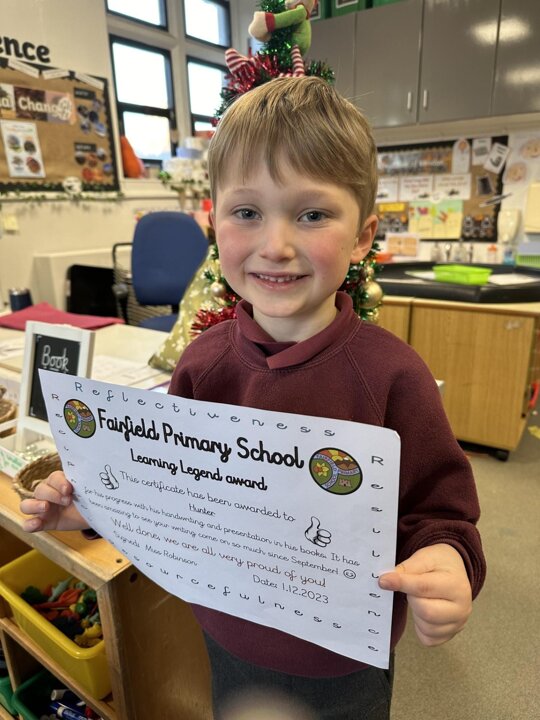 ence
Chan
Book
Reflectiveness
Reciprocity
Fairfield Primary School
Learning Legend award
This certificate has been awarded to
Hunter
for his progress with his handwriting and presentation in his books. It has
been amazing to see your writing come on so much since September! ☺
Well done, we are all very proud of you!
Signed: Miss Robinson
Date: 1.12.2023
Resilience
Resourcefulness